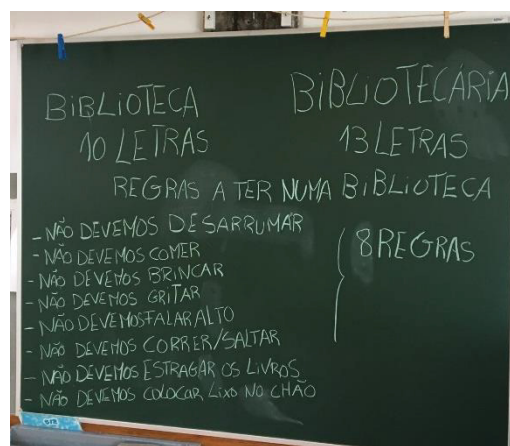 BIBLIOTECA
10 LETRAS
BIBLIOTECÁRIA
13 LETRAS
REGRAS A TER NUMA BIBLIOTECA
- NÃO DEVEMOS DESARRUMAR
- NÃO DEVEMOS COMER
- NÃO DEVEMOS BRINCAR
- NÃO DEVEMOS GRITAR
- NÃO DEVEMOS FALAR ALTO
- NÃO DEVEMOS CORRER/SALTAR
- NÃO DEVEMOS ESTRAGAR OS LIVROS
- NÃO DEVEMOS COLOCAR LIXO NO CHÃO
8 REGRAS